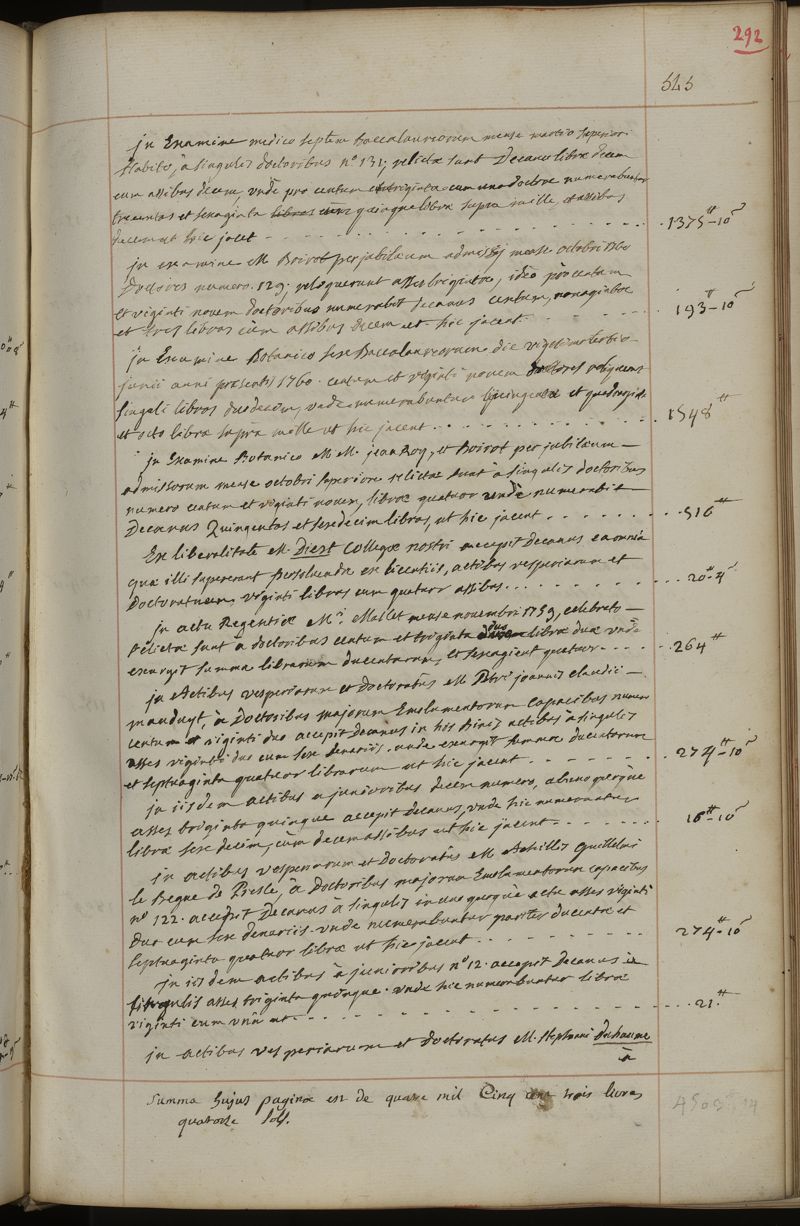 292
545
in Examine medico septem Baccalaureorum mense martio superiori
habito, à singulis doctoribus n° 131; relictæ sunt Decano libræ decem
cum assibus decem, undè pro centum et triginta cum uno doctore numerabuntur
trecentas et septuaginta quinque libræ supra mille, et assibus
decem ut hic jacet - - - 1375ᵗᵗ-10ˢ
in examine M. Boirot per jubilæum admissi mense octobri 1760
Doctores numero 129; reliquerunt asses triginta, ideo pro centum
et viginti novem doctoribus numerabit decanus centum, nonaginta
et tres libras cum assibus decem ut hic jacent - - - 193ᵗᵗ-10ˢ
in Examine Botanico sex Baccalaureorum die vigesima tertia
junii anni præsentis 1760. centum et viginti novem doctores relinquunt
singuli libras duodecim, unde numerabuntur quingentæ et quadraginta
et octo libræ supra mille ut hic jacent - - - 1548ᵗᵗ
in Examine Botanico M M. jean Roy, et Boirot per jubilæum
admissorum mense octobri superiore relictæ sunt à singulis doctoribus
numero centum et viginti novem, libræ quatuor undè numerabit
Decanus Quingentas et sexdecim libras, ut hic jacent - - - 516ᵗᵗ
Ex liberalitate M. Diest Collegæ nostri accepit decanus ea omnia
quæ illi supererant Persolvenda ex licentiis, actibus vesperiarum et
doctoratuum, viginti libras cum quatuor assibus - - - 20ᵗᵗ-4ˢ
in actu Regentiæ Mⁱ. Mallet mense novembri 1759, celebrato
relictæ sunt à doctoribus centum et triginta duo libræ duæ unde
exurgit summa librarum ducentarum, et sexaginta quatuor - - - 264ᵗᵗ
in Actibus vesperiarum et Doctoratûs M Petri joannis claudii
mauduyt, à Doctoribus majorum Emolumentorum capacibus numero
centum et viginti duo accepit decanus in his binis actibus à singulis
asses viginti duo cum sex denariis, unde exurgit summa ducentarum
et septuaginta quatuor librarum ut hic jacent - - - 274ᵗᵗ-10ˢ
in iisdem actibus a junioribus decem numero, alieno perquè
asses triginta quinque accepit decanus, unde hic numerantur
libræ sex decim, cùm decem assibus ut hic jacent - - - 16ᵗᵗ-10ˢ
in actibus vesperiarum et doctoratûs M Achillis guillelmi
le Begue de Presle, à Doctoribus majorum Emolumentorum capacibus
n° 122. accepit Decanus à singulis in uno quoquè actu asses viginti
duo cum sex denariis. unde numerabuntur pariter ducentæ et
septuaginta quatuor libræ ut hic jacent - - - 274ᵗᵗ-10ˢ
in iisdem actibus à junioribus n° 12. accepit decanus à
singulis asses triginta quinque. unde hic numerabuntur libræ
viginti cum unâ ut - - - 21ᵗᵗ
in actibus vesperiarum et doctoratus M. stephani Duhaume
à
Summa hujus paginæ est de quatre mil Cinq cent trois livres
quatorze sols.
4503ᵗᵗ 14